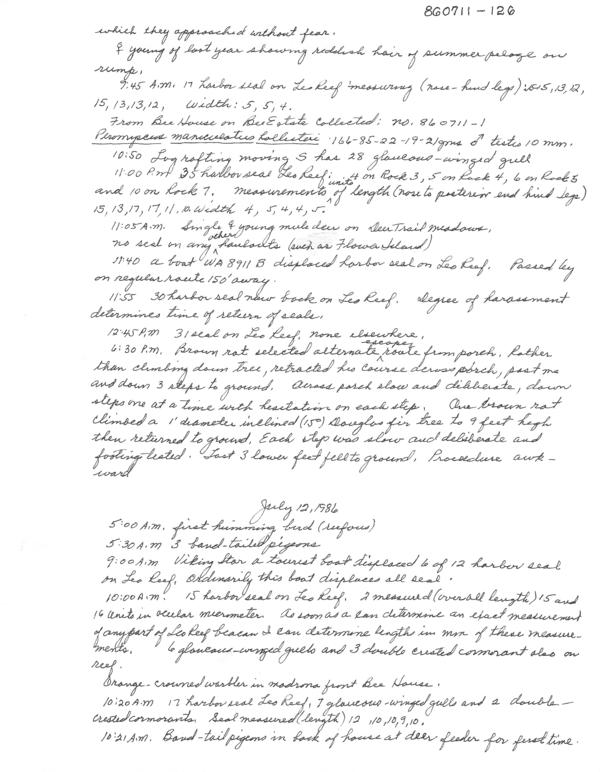 860711-126
which they approached without fear.
♀ young of last year showing reddish hair of summer pelage on
rump.
9:45 A.M. 17 harbor seal on Leo Reef measuring (nose-hind legs): 15, 13, 12,
15, 13, 13, 12, width: 5, 5, 4.
From Bee House on Bee Estate collected: no. 860711-1
Peromyscus maniculatus hollesteri 166-85-22-19-21gms ♂ testis 10 mm.
10:50 Log rafting moving S has 28 glaucous-winged gull
11:00 P.M 35 harbor seal Leo Reef: 4 on Rock 3, 5 on Rock 4, 6 on Rock 5
and 10 on Rock 7. measurements units of length (nose to posterior end hind legs)
15, 13, 17, 17, 11. width 4, 5, 4, 4, 5.
11:05 A.M. Single ♀ young mule deer on Deer Trail meadows,
no seal on any other haulouts (such as Flower Island)
11:40 a boat WA 8911 B displaced harbor seal on Leo Reef. Passed by
on regular route 150' away.
11:55 30 harbor seal now back on Leo Reef. Degree of harassment
determines time of return of seals.
12:45 P.M 31 seal on Leo Reef, none elsewhere.
6:30 P.M. Brown rat selected alternate escape route from porch. Rather
than climbing down tree, retracted his course across porch, past me
and down 3 steps to ground. Across porch slow and deliberate, down
steps one at a time with hesitation on each step. One brown rat
climbed a 1' diameter inclined (15°) Douglas fir tree to 9 feet high
then returned to ground. Each step was slow and deliberate and
footing tested. Last 3 lower feet fell to ground. Procedure awk-
ward
July 12, 1986
5:00 A.M. first humming bird (rufous)
5:30 A.M 3 band-tailed pigeons
9:00 A.M Viking Star a tourist boat displaced 6 of 12 harbor seal
on Leo Reef. Ordinarily this boat displaces all seal.
10:00 A.M. 15 harbor seal on Leo Reef. 2 measured (overall length) 15 and
16 units in ocular micrometer. As soon as I can determine an exact measurement
of any part of Leo Reef beacon I can determine length in mm of these measure-
ments. 6 glaucous-winged gulls and 3 double crested cormorant also on
reef.
Orange-crowned warbler in madrona front Bee House.
10:20 A.M 17 harbor seal Leo Reef, 7 glaucous-winged gulls and 2 double-
crested cormorants. Seal measured (length) 12, 10, 10, 9, 10.
10:21 A.M. Band-tail pigeons in back of house at deer feeder for first time.